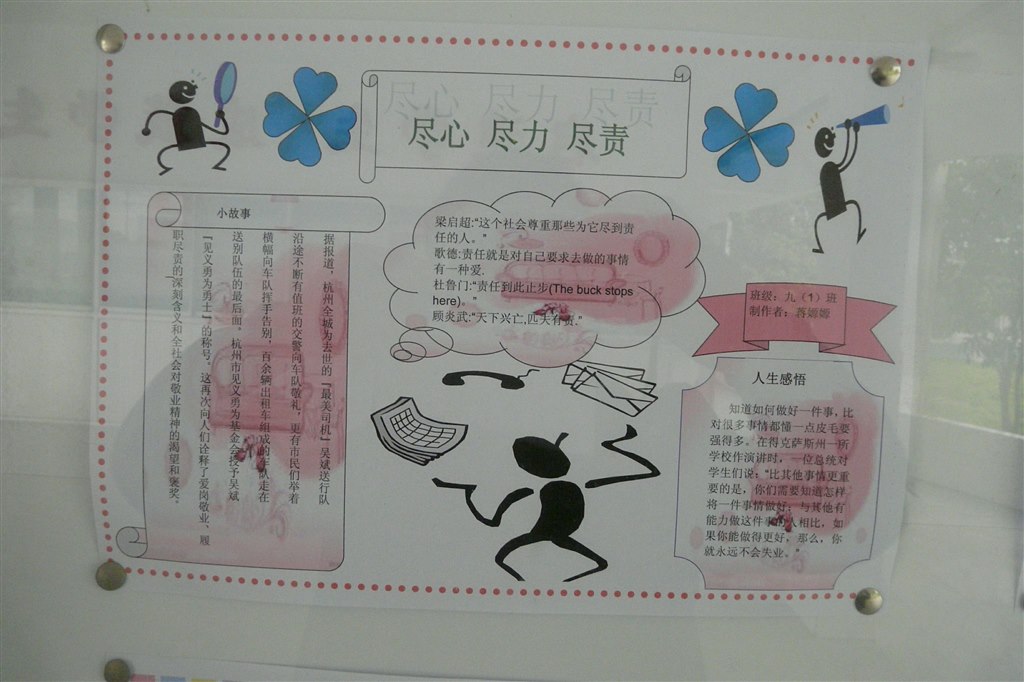 尽心 尽力 尽责
小故事
据报道，杭州全城为去世的『最美司机』吴斌送行队
沿途不断有值班的交警向车队敬礼，更有市民们举着
横幅向车队挥手告别，百余辆出租车组成的车队走在
送别队伍的最后面。杭州市见义勇为基金会授予吴斌
『见义勇为勇士』的称号。这再次向人们诠释了爱岗敬业、履
职尽责的深刻含义和全社会对敬业精神的渴望和褒奖。
梁启超:“这个社会尊重那些为它尽到责
任的人。”
歌德:责任就是对自己要求去做的事情
有一种爱.
杜鲁门:“责任到此止步(The buck stops
here)。”
顾炎武:“天下兴亡,匹夫有责.”
班级：九（1）班
制作者：
人生感悟
知道如何做好一件事，比
对很多事情都懂一点皮毛要
强得多。在得克萨斯州一所
学校作演讲时，一位总统对
学生们说：“比其他事情更重
要的是，你们需要知道怎样
将一件事情做好；与其他有
能力做这件事的人相比，如
果你能做得更好，那么，你
就永远不会失业。”